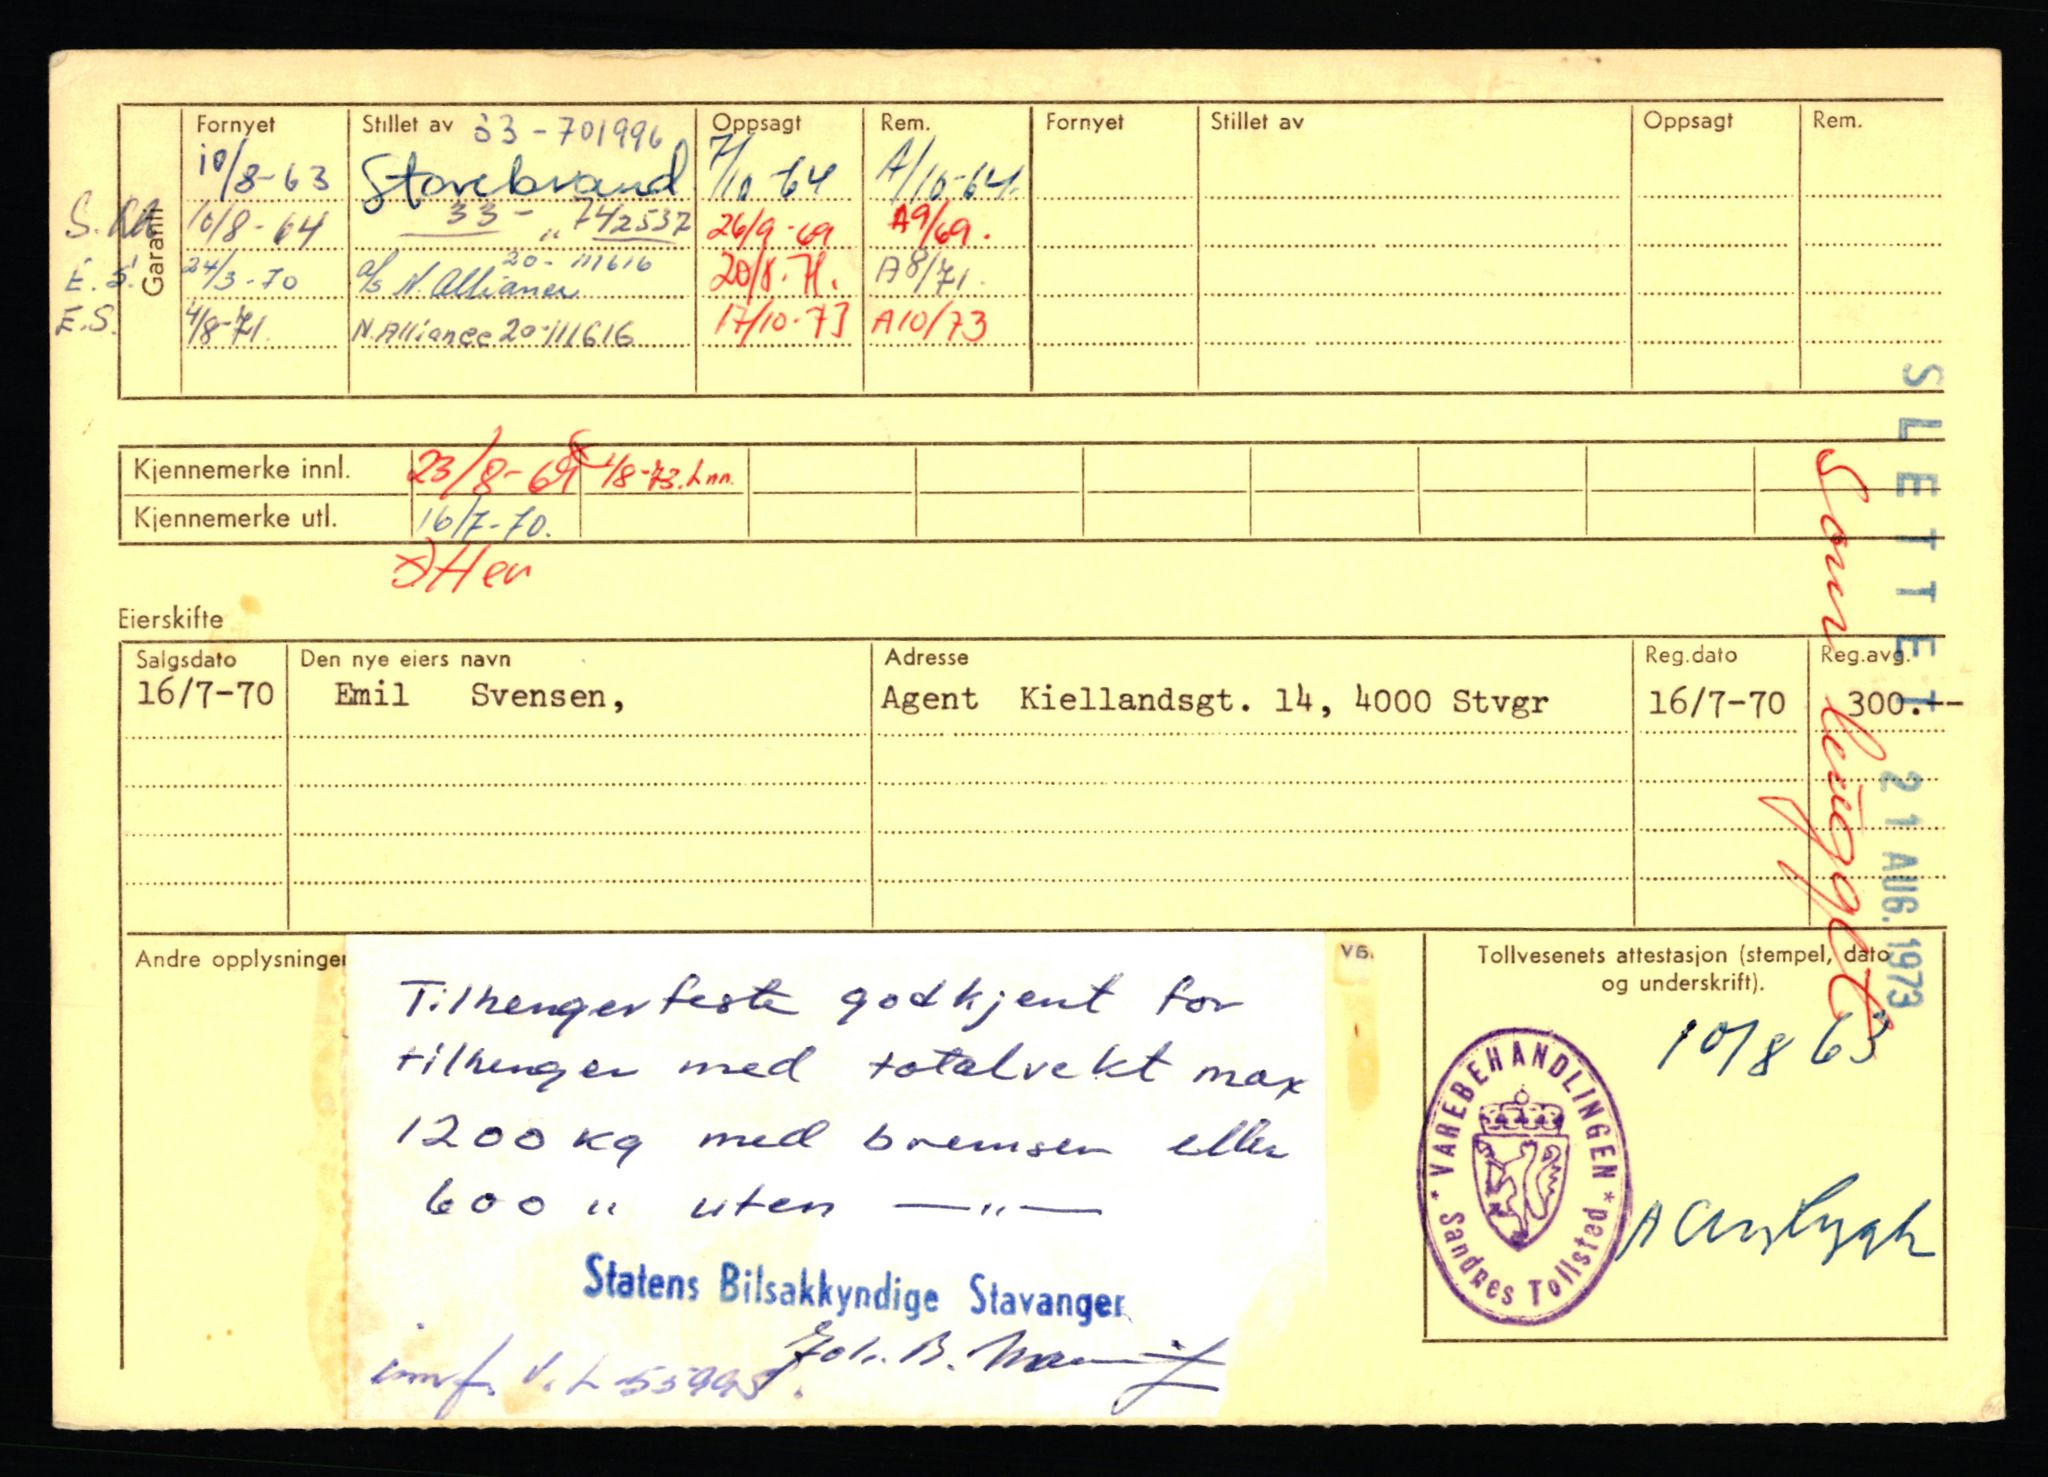 Garanti
Fornyet Stillet av Oppsagt Rem. Fornyet Stillet av Oppsagt Rem.
33-701996
10/8-63 Storebrand 7/10-64 A/10-64.
10/8-64 33- „ 742537 26/9-69 A9/69.
E.S. 24/3-70 a/s N. Alliance 20-111616 20/8-71. A8/71.
E.S. 4/8-71. N. Alliance 20-111616 17/10-73 A10/73
Kjennemerke innl. 23/8-69 1/8-73. Lnn.
Kjennemerke utl. 16/7-70.
SLETTET 21 AUG. 1973
Eierskifte
Salgsdato Den nye eiers navn Adresse Reg.dato Reg.avg.
16/7-70 Emil Svensen, Agent Kiellandsgt. 14, 4000 Stvgr 16/7-70 300.--
Andre opplysninger
Tilhengerfeste godkjent for
tilhenger med totalvekt max
1200 kg med bremser eller
600 " uten —"—
Statens Bilsakkyndige Stavanger
Tollvesenets attestasjon (stempel, dato
og underskrift).
10/8 63
* VAREBEHANDLINGEN *
Sandnes Tollsted